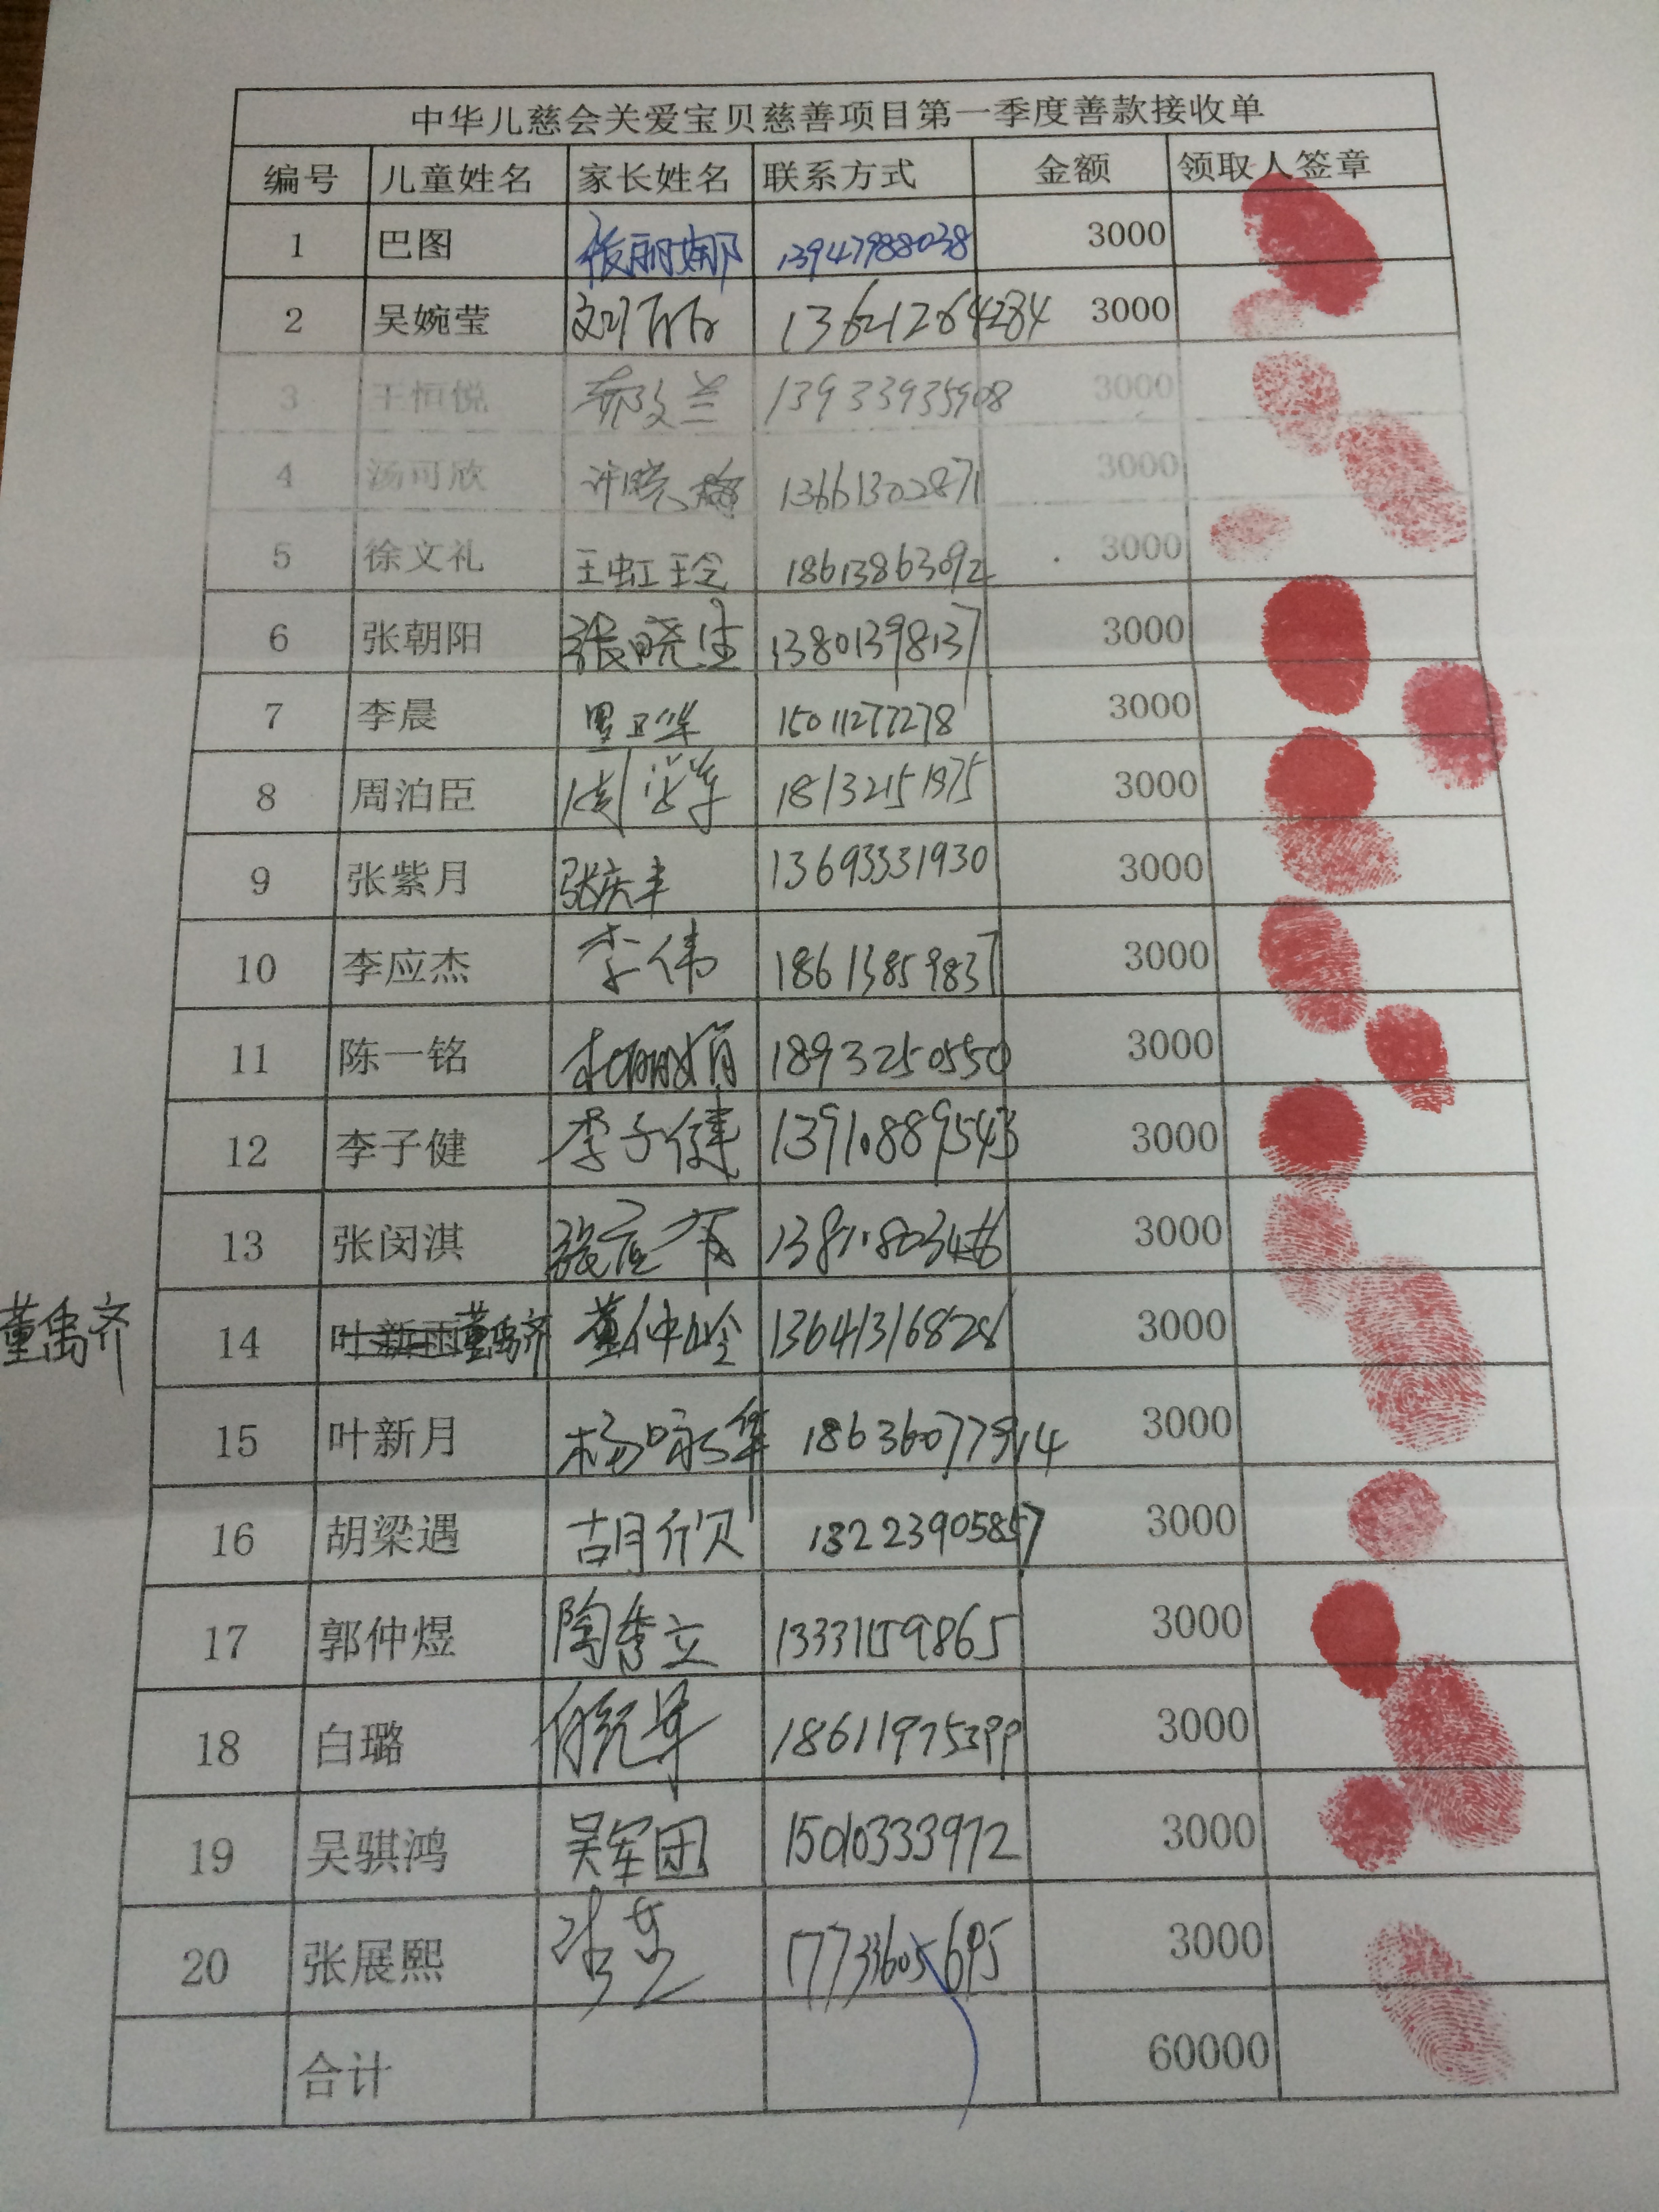 中华儿慈会关爱宝贝慈善项目第一季度善款接收单
编号 儿童姓名 家长姓名 联系方式 金额 领取人签章
1 巴图 张丽娜 13947988038 3000
2 吴婉莹 13621264284 3000
3 王恒悦 13933935908 3000
4 汤可欣 许晓梅 13661302871 3000
5 徐文礼 王虹玲 18613863092 3000
6 张朝阳 张晓生 13801398137 3000
7 李晨 罗卫华 15011277278 3000
8 周泊臣 18132151975 3000
9 张紫月 张庆丰 13693331930 3000
10 李应杰 李伟 18613859837 3000
11 陈一铭 杜丽娟 1893250550 3000
12 李子健 李子健 13910889543 3000
13 张闵淇 3000
董禹齐
14 叶新雨董禹齐 董仲岭 13641316828 3000
15 叶新月 杨咏华 3000
16 胡梁遇 胡欣 18223905857 3000
17 郭仲煜 陶秀立 13331159865 3000
18 白璐 18611975399 3000
19 吴骐鸿 吴军团 15010333972 3000
20 张展熙 17733605695 3000
合计 60000